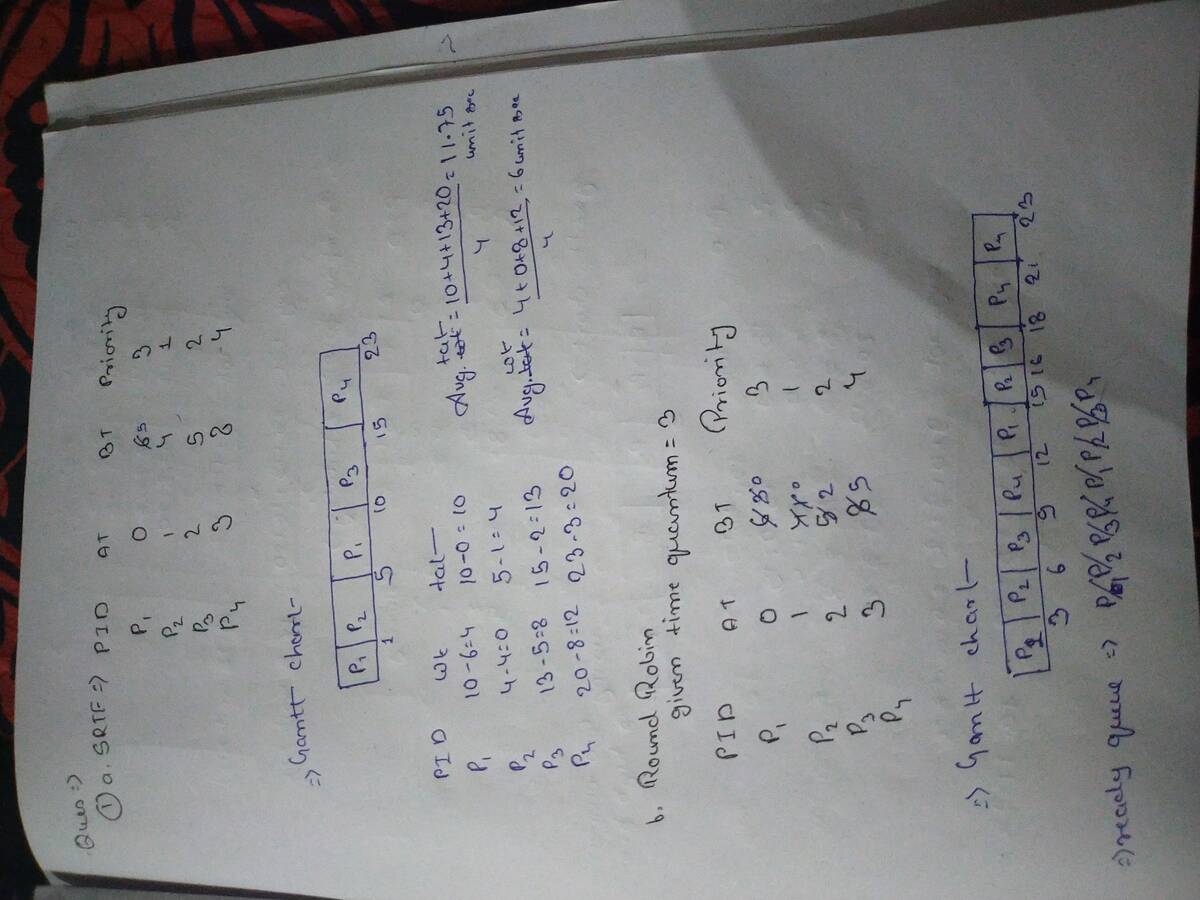 Ques ⇒
① a. SRTF ⇒ PID AT BT Priority
P1 0 6 5 3
P2 1 4 1
P3 2 5 2
P4 3 8 4
⇒ Gantt chart
P1 P2 P1 P3 P4
1 5 10 15 23
PID wt tat
P1 10-6=4 10-0=10
P2 4-4=0 5-1=4
P3 13-5=8 15-2=13
P4 20-8=12 23-3=20
Avg. tat = 10+4+13+20 = 11.75
4 unit sec
Avg. wt tat = 4+0+8+12 = 6 unit sec
4
b. Round Robin
given time quantum = 3
PID AT BT Priority
P1 0 6 3 0 3
P2 1 4 1 0 1
P3 2 5 2 2
P4 3 8 5 4
⇒ Gantt chart
P1 P2 P3 P4 P1 P2 P3 P4 P4
3 6 9 12 15 16 18 21 23
⇒ ready queue ⇒ P1 P2 P3 P4 P1 P2 P3 P4